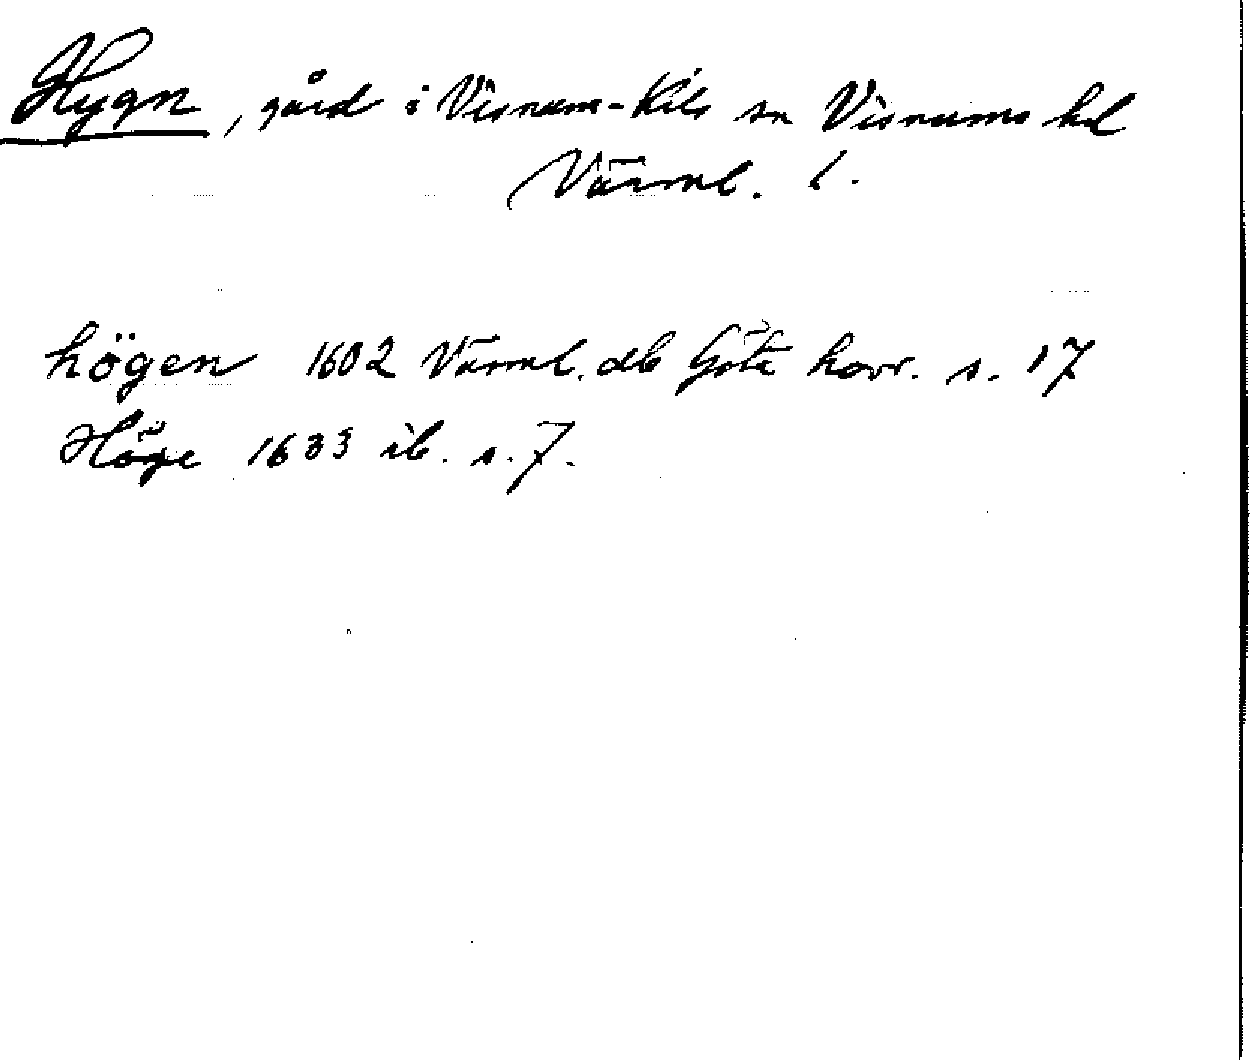 Hygn, gård i Visnum-Kils sn Visnums hd
Värml. l.
högen 1602 Värml. db Göta hovr. s. 17
Höge 1633 ib. s. 7.